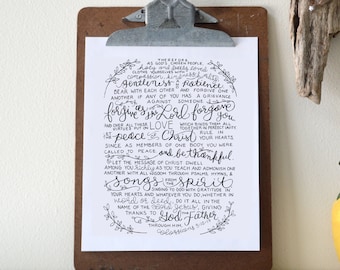 THEREFORE
AS GOD'S CHOSEN PEOPLE,
holy and dearly loved
CLOTHE YOURSELVES WITH
compassion, kindness, humility
gentleness & patience
BEAR WITH EACH OTHER AND FORGIVE ONE
ANOTHER IF ANY OF YOU HAS A GRIEVANCE
AGAINST SOMEONE
forgive as the Lord forgave you
AND OVER ALL THESE VIRTUES PUT ON LOVE WHICH BINDS THEM ALL TOGETHER IN PERFECT UNITY
peace of Christ RULE IN YOUR HEARTS
SINCE AS MEMBERS OF ONE BODY YOU WERE
CALLED TO PEACE and be thankful.
LET THE MESSAGE OF CHRIST DWELL
AMONG YOU richly AS YOU TEACH AND ADMONISH ONE
ANOTHER WITH ALL WISDOM THROUGH PSALMS, HYMNS, &
songs from the spirit
SINGING TO GOD WITH GRATITUDE IN
YOUR HEARTS AND WHATEVER YOU DO, WHETHER IN
WORD OR DEED, DO IT ALL IN THE
NAME OF THE Lord Jesus, GIVING
THANKS TO God the Father
THROUGH HIM.